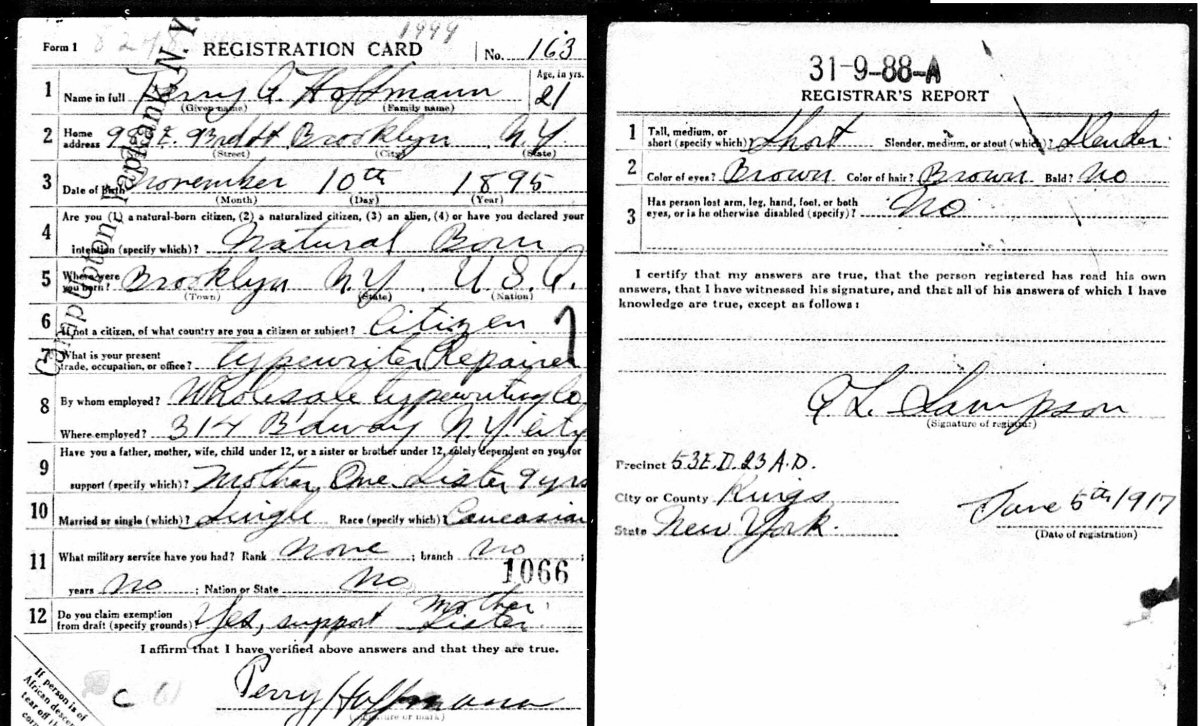 Form 1 8248 REGISTRATION CARD 1999 No. 163
1 Name in full Perry A. Hoffmann Age, in yrs. 21
(Given name) (Family name)
2 Home address E. 93rd St Brooklyn N.Y.
(Street) (City) (State)
3 Date of Birth November 10th 1895
(Month) (Day) (Year)
Are you (1) a natural-born citizen, (2) a naturalized citizen, (3) an alien, (4) or have you declared your
4 intention (specify which)? Natural Born
5 Where were you born? Brooklyn N.Y. U.S.A.
(Town) (State) (Nation)
6 If not a citizen, of what country are you a citizen or subject? Citizen
7 What is your present trade, occupation, or office? typewriter Repairer
8 By whom employed? Wholesale typewriting Co
Where employed? 314 B'dway N.Y. City
9 Have you a father, mother, wife, child under 12, or a sister or brother under 12, solely dependent on you for
support (specify which)? Mother, One Sister 9 yrs
10 Married or single (which)? Single Race (specify which)? Caucasian
11 What military service have you had? Rank None ; branch No ;
years No ; Nation or State No
1066
12 Do you claim exemption from draft (specify grounds)? Yes, support mother, Sister.
I affirm that I have verified above answers and that they are true.
C
Perry Hoffmann
(Signature or mark)
If person is of
African descent
tear off
corner
Camp Upton, Yaphank N.Y.
31-9-88-A
REGISTRAR'S REPORT
1 Tall, medium, or short (specify which)? Short Slender, medium, or stout (which)? Slender
2 Color of eyes? Brown Color of hair? Brown Bald? No
3 Has person lost arm, leg, hand, foot, or both
eyes, or is he otherwise disabled (specify)? No
I certify that my answers are true, that the person registered has read his own
answers, that I have witnessed his signature, and that all of his answers of which I have
knowledge are true, except as follows:
A. L. Sampson
(Signature of registrar)
Precinct 53 E.D. 23 A.D.
City or County Kings
State New York.
June 5th 1917
(Date of registration)